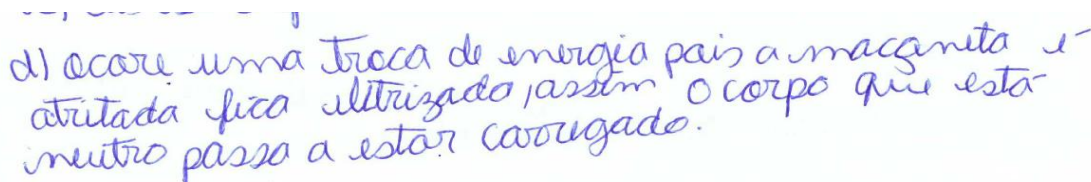 d) ocore uma troca de energia pois a maçaneta é
atritada fica eletrizado, assim o corpo que está
neutro passa a estar carregado.